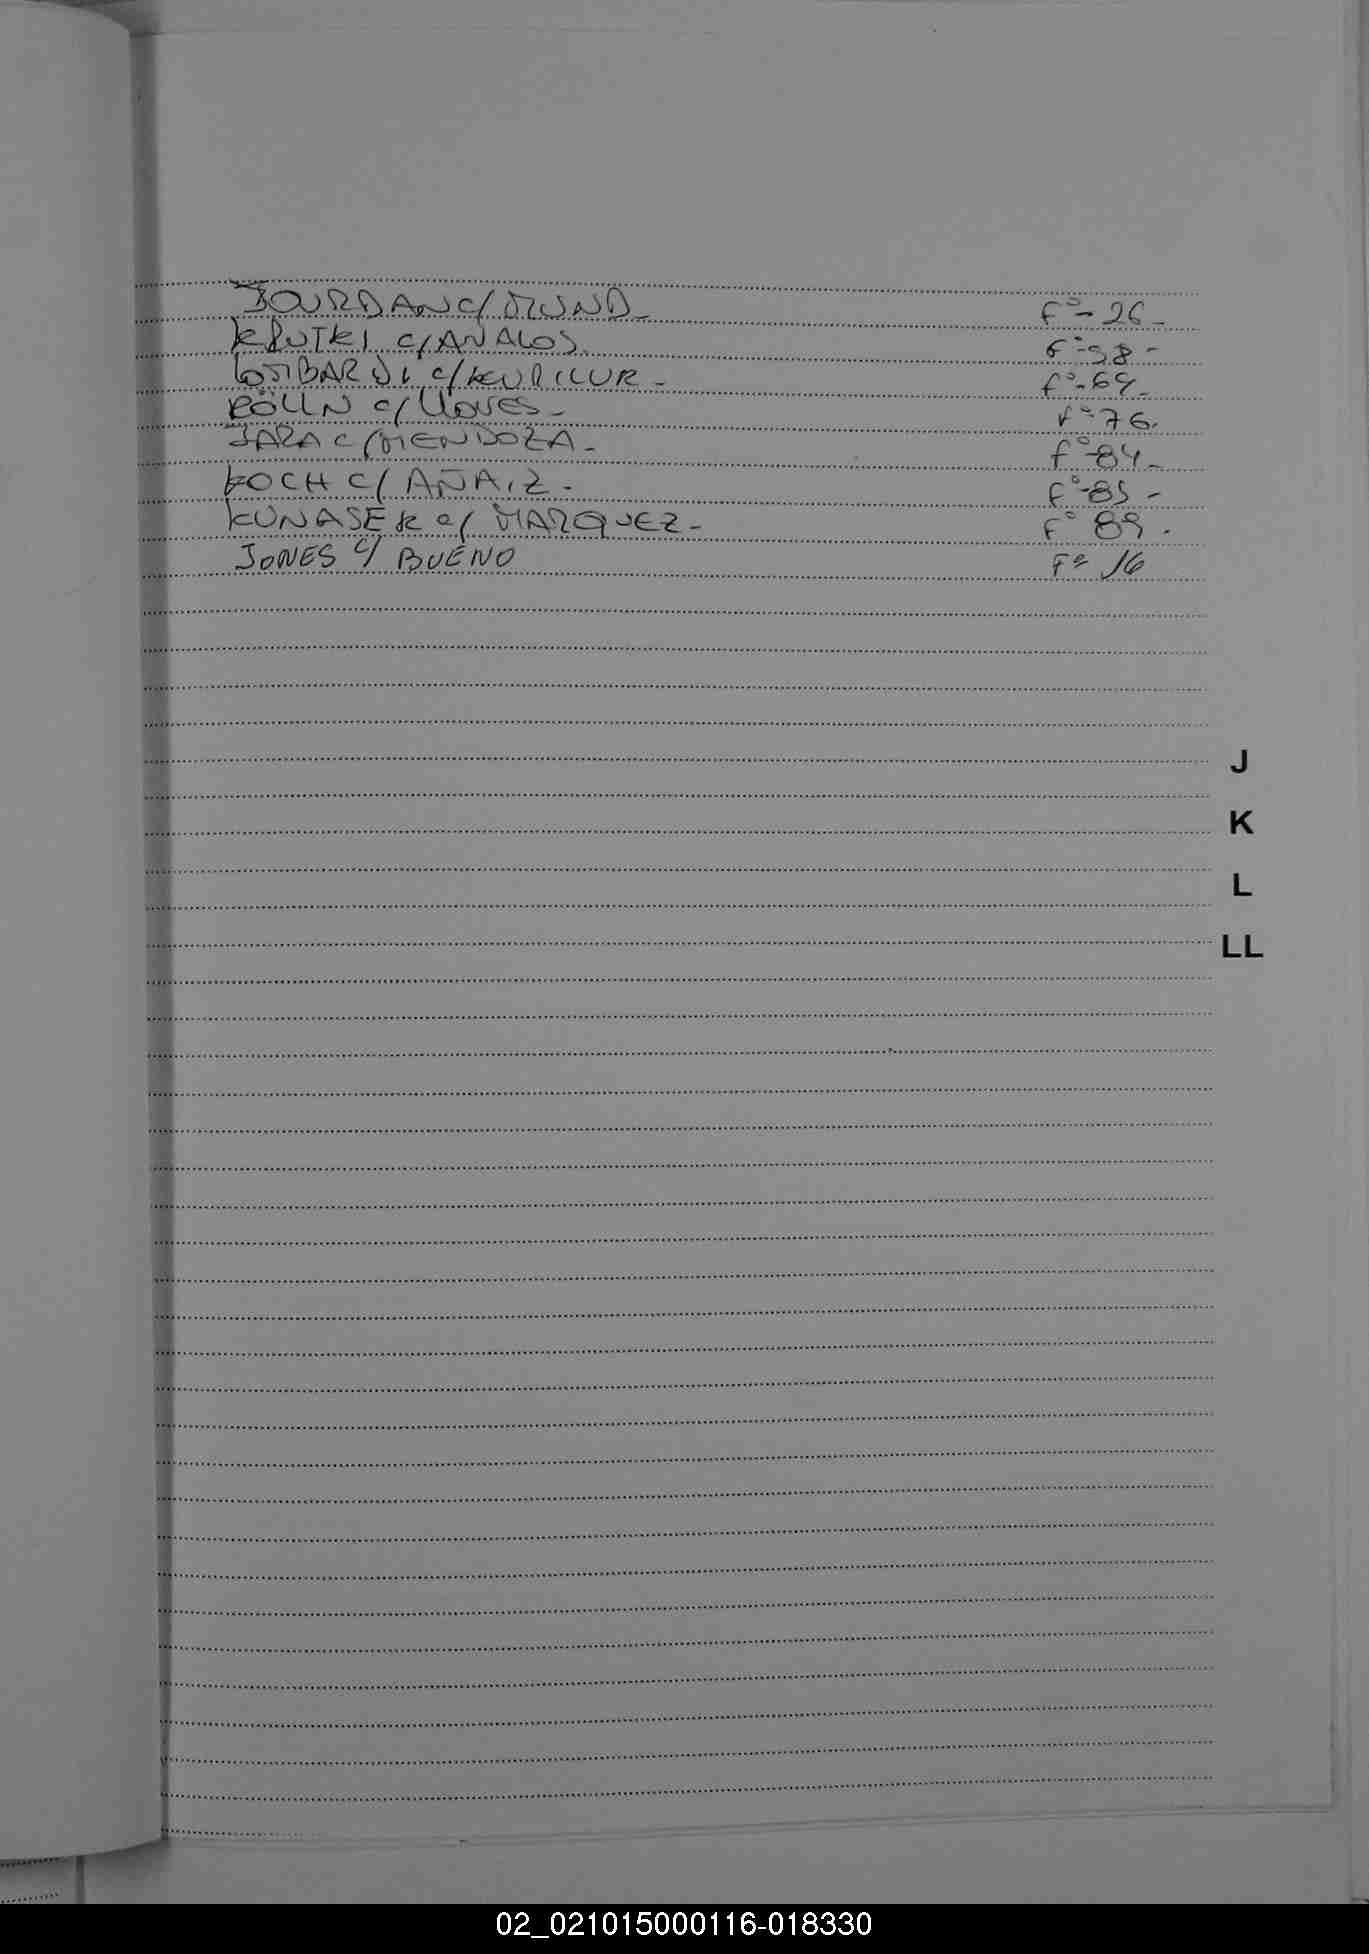 JOURDAN C/ MUND - F° - 26 -
KRUTKI C/ ANALOS. F° - 98 -
LOMBARDI C/ F° - 64 -
KÖLLN C/ LLOVES - F° - 76.
JARA C/ MENDOZA - F° - 84 -
KOCH C/ AÑAIZ - F° - 85 -
KUNASEK C/ MARQUEZ - F° 89 -
JONES C/ BUENO F° 16
J
K
L
LL
02_021015000116-018330